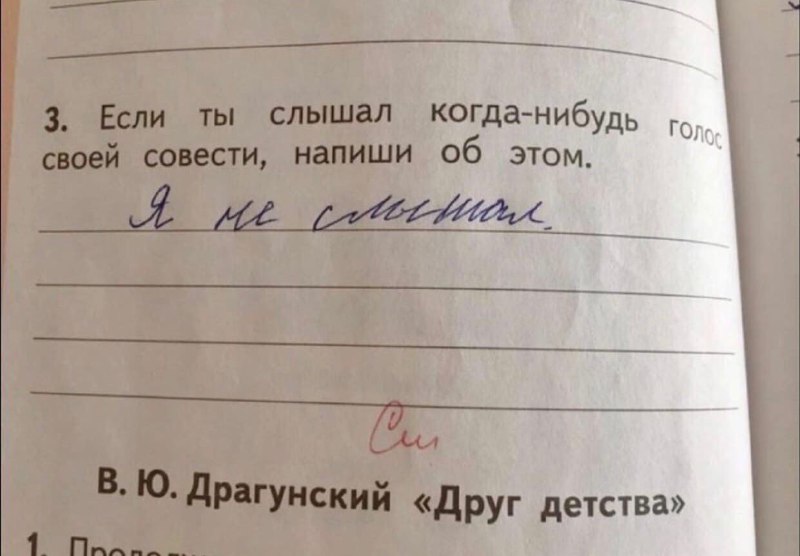 3. Если ты слышал когда-нибудь голос
своей совести, напиши об этом.
Я не слышал.
См
В. Ю. Драгунский «Друг детства»
1.